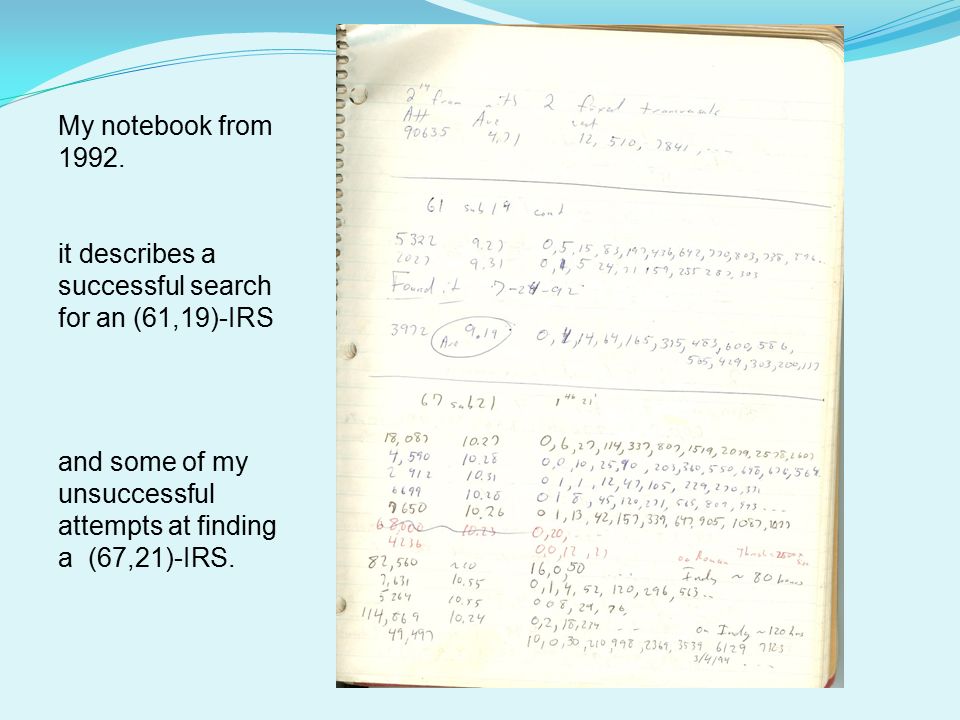 My notebook from
1992.
it describes a
successful search
for an (61,19)-IRS
and some of my
unsuccessful
attempts at finding
a (67,21)-IRS.
2 from with 2 fixed transversals
Att Ave
90635 4.71 12, 510, 7841, ...
61 sub 19 cont
5322 9.27 0,5,15,83,197,436,642,770,803,738,
2027 9.31 0,1,5 24,71,159,235
Found it 7-24-92
3972 9.19 0,1,14,64,165,335,483,600,586,
Ave 505,429,303,200,117
67 sub 21
18,087 10.27 0,6,27,114,337,807,1519,2079,2578,2607
4,590 10.28 0,0,10,25,90,203,360,550,698,676,564
2 912 10.31 0 1,1,12,47,105, 229,270,371
6699 10.28 0 1 8, 45,120,271, 565,807,993 ...
7650 10.26 0 1,13,42,157,339,647,905,1087,1077
6 8000 10.23 0,20, ...
4236 0,0,12,
82,560 ~10 16,0,50 on Roman
7,631 10.55 0,1,4,52,120,296,563.. Indy ~ 80 hours
5 264 10.55 0 0 8, 29, 76,
114,869 10.24 0,2,18,234 ... on Indy ~120 hrs
49,497 10,0,30,210,998,2369,3539 6129 7123
3/4/94 ...